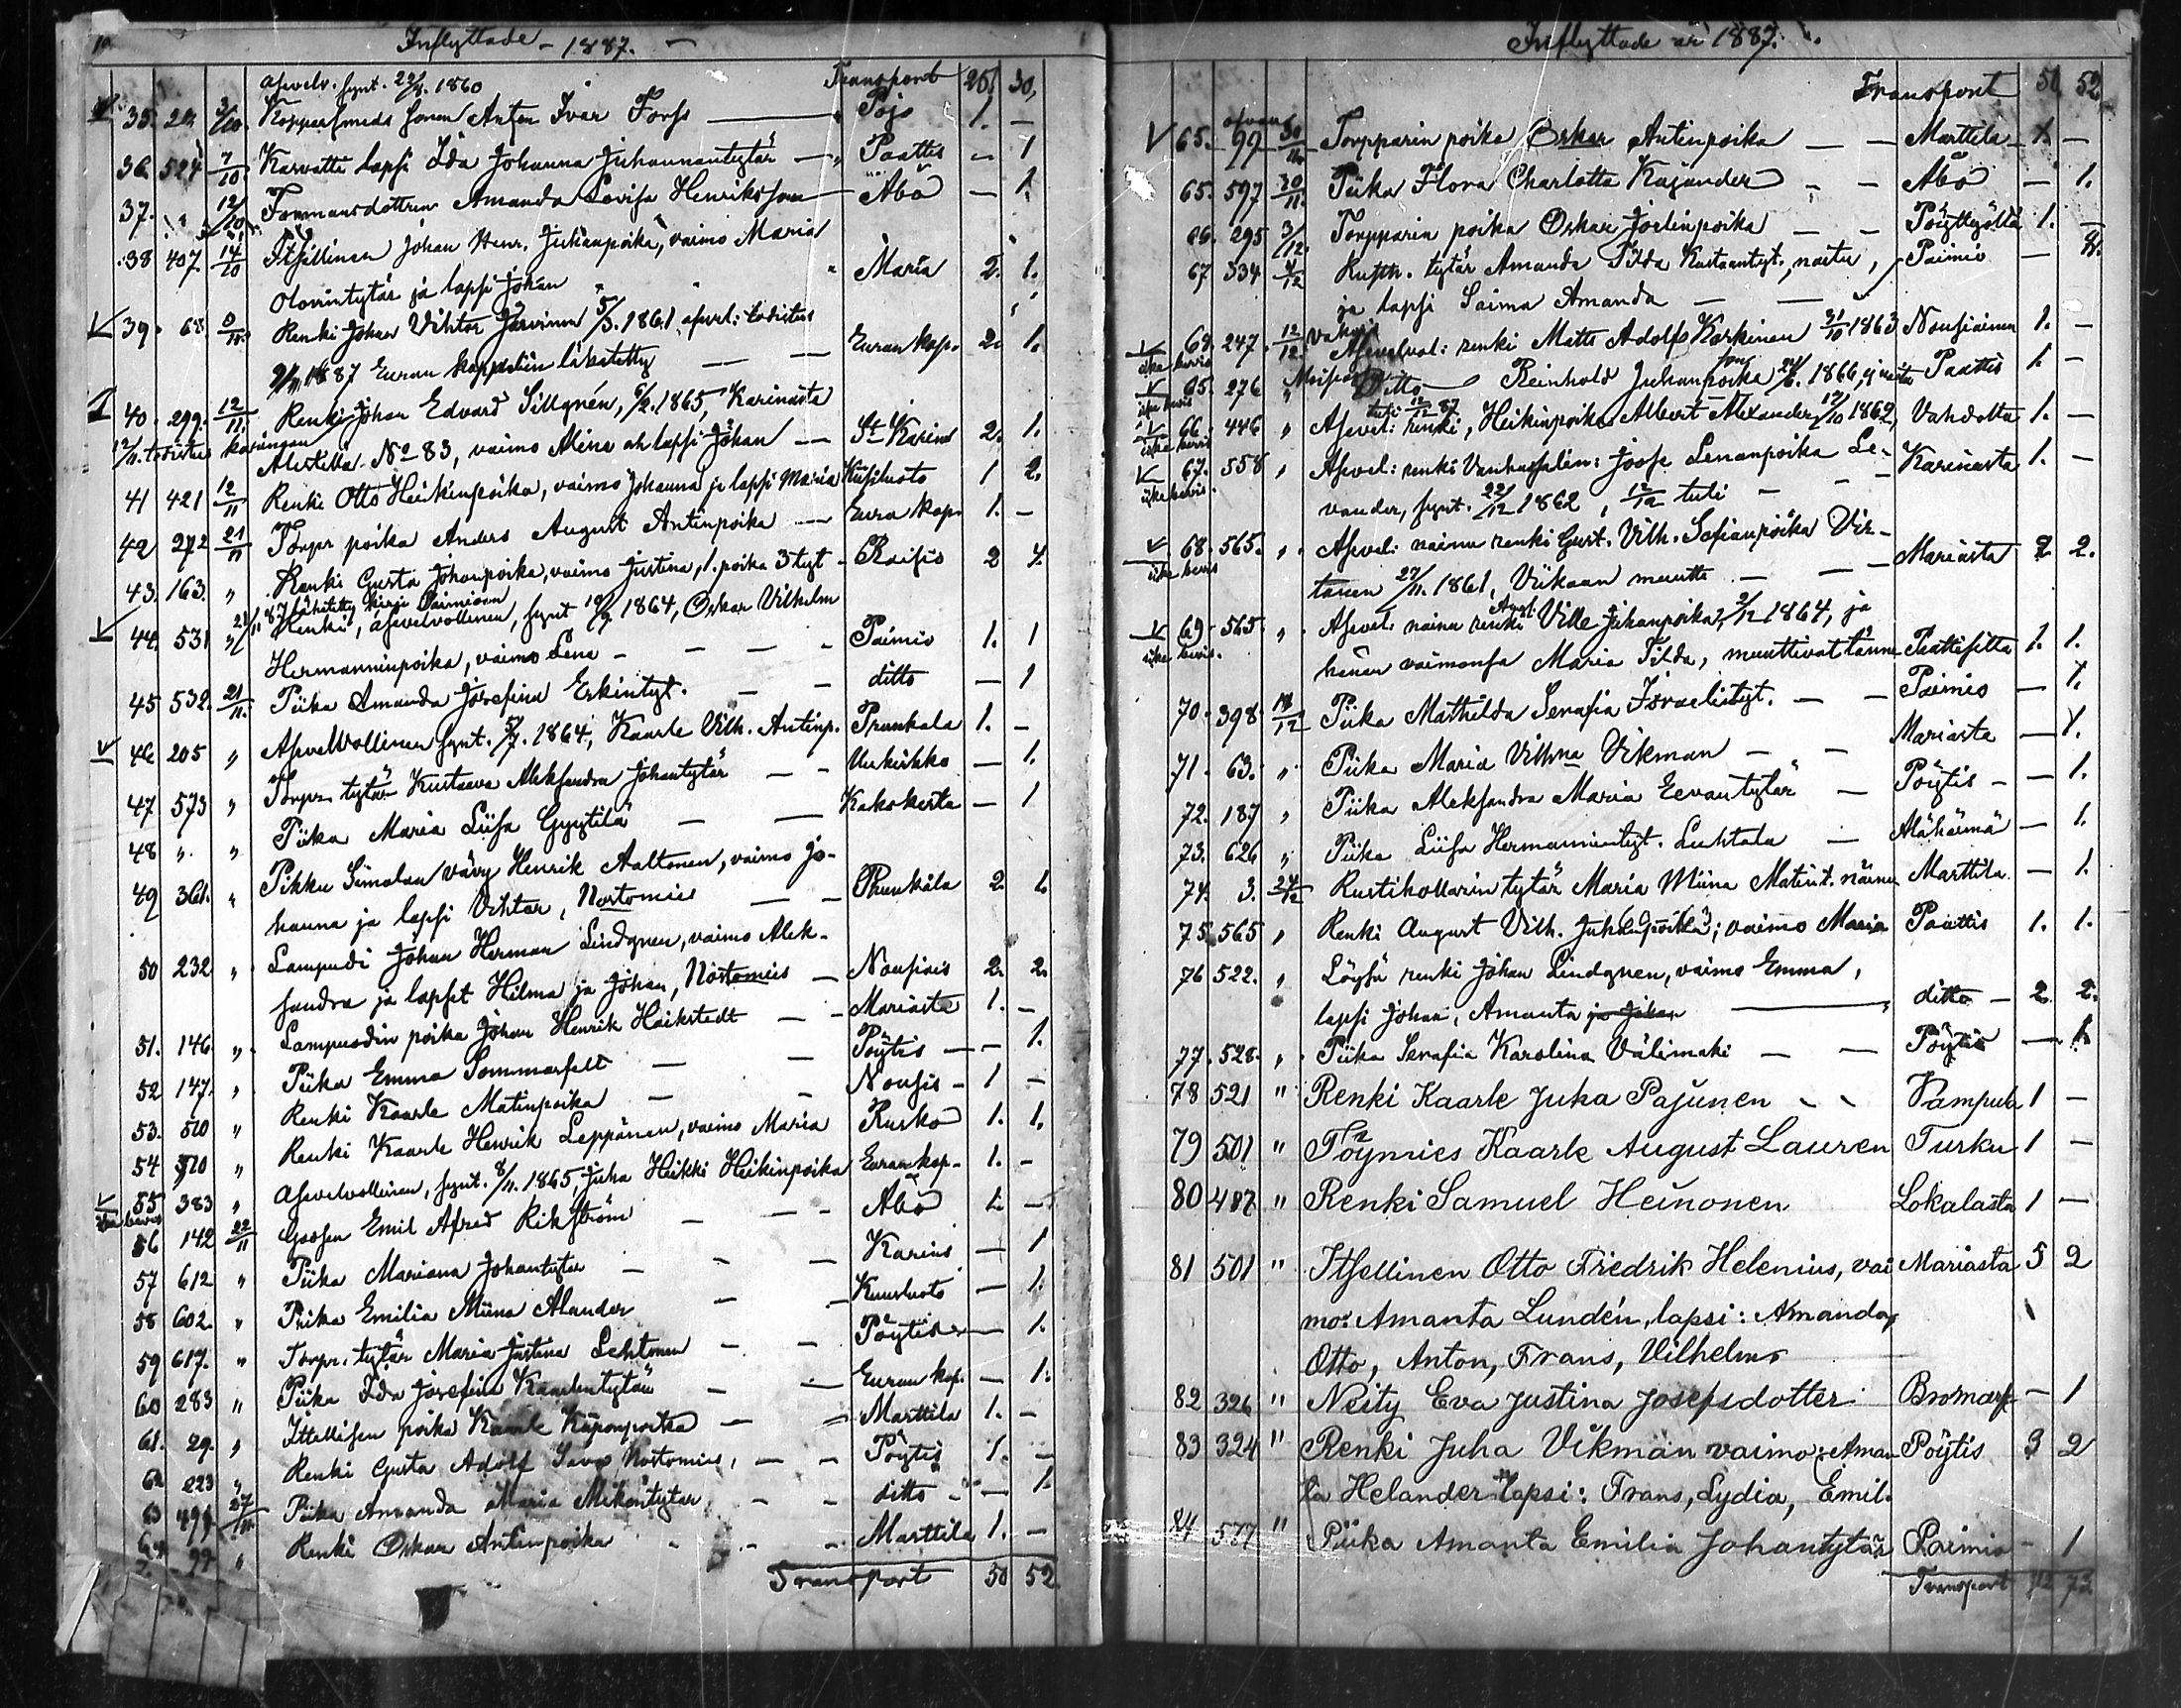 Inflyttade - 1887. -
asevelv. synt. 22/8. 1860 Transport 26 30
35. 3/10 Kopparsmeds sonen Anton Ivar Forss — Pojo 1. -
36. 524 7/10 Karvatti lapsi Ida Johanna Juhannantytär — Paattis - 1
37. 12/10 Formansdottren Amanda Lovisa Henriksson — Åbo - 1.
38 407 14/10 Itsellinen Johan Henr. Juhanpoika, vaimo Maria
Olovintytär ja lapsi Johan " Maria 2. 1.
39. 68. Renki Johan Vihtor Järvinen 5/3. 1861, asevl: todistus
1887 Euran kappeliin lähetetty — — Euran kap. 2. 1.
40. 299. 12/11. Renki Johan Edvard Sillgrén, 6/2. 1865, Karinasta
12/11. todistus
Alestalla No 83, vaimo Mina lapsi Johan — St Karins 2. 1.
41 421 12/11 Renki Otto Heikinpoika, vaimo Johanna ja lapsi Maria Kusiluoto 1 2.
42 272 21/11 Torpr poika Anders August Antinpoika — Eura kap. 1. -
43. 163. " Renki Gusta Johanpoika, vaimo Justina, 1. poika 3 tyt - Raisio 2 4.
21/11 87 lähetetty kirja Paimioon
44. 531 " Renki, asevelvollinen, synt 19/9 1864, Oskar Vilhelm
Hermanninpoika, vaimo Lena - - - - Paimio 1. 1
45 532. 21/11. Piika Amanda Josefina Erkintyt. - - ditto - 1
46 205 " Asevelvollinen synt. 5/7. 1864, Kaarle Vilh. Antinp. Prunkala 1. -
47 573 " Torpr. tytär Kustaava Aleksandra Johantytär — - Uukirkko - 1.
48 " " Piika Maria Liisa Gyytilä — — Kakskerta - 1
49 361. " Pikku Simolan vävy Henrik Aaltonen, vaimo Jo-
hanna ja lapsi Vihtor, Nostomies — - Prunkala 2. 1.
50 232 " Lampuodi Johan Herman Lindgren, vaimo Alek-
sandra ja lapset Hilma ja Johan, Nostomies — Nousiais 2. 2.
51. 146 " Lampuodin poika Johan Henrik Haikstedt - - Mariasta 1. -
52 147. " Piika Emma Sommarfelt — — Pöytis - - 1.
53. 510 " Renki Kaarle Matinpoika — - Nousis - 1 -
54 510 " Renki Kaarle Henrik Leppänen, vaimo Maria Rusko 1. 1.
55 383 " Asevelvollinen, synt. 8/11. 1865, Juha Heikki Heikinpoika Euran kap. 1. -
56 142 22/11 Gossen Emil Afred Rikström - - - Åbo 1. -
57 612 " Piika Mariana Johantytär — - - Karins - 1
58 602 " Piika Emilia Miina Alander — - Kuusluoto - 1.
59 617. " Torpr. tytär Maria Justina Lehtonen - - Pöytis - - 1.
60 283 " Piika Ida Josefina Kaarlentytär - — Euran kap. - 1.
61. 29. " Ittellisen poika Kaarle — - Marttila 1. -
62 223 " Renki Gusta Adolf Nostomies, — - Pöytis 1. -
63 27/11. Piika Amanda Maria Mikontytär - - ditto - - 1.
64 99 " Renki Oskar Antinpoika - - - Marttila 1. -
Transport 50 52
Inflyttade år 1887.
Transport 50 52
65. 99 30/11. Torpparin poika Oskar Antinpoika — — Marttila 1. -
65. 597 30/11. Piika Flora Charlotta Kajander - - Åbo - 1.
66. 295 3/12. Torpparin poika Oskar Joelinpoika — - Pöyttyältä 1. -
67 334 4/12 Rusth. tytär Amanda Tilda Kustaantyt., naitu, Paimio -
ja lapsi Saima Amanda — —
247. 12/12. Asevelvol: renki Matts Adolf Korkinen 31/10 1863 Nousiainen 1. -
65. 276 " Ditto — Reinhold Juhanpoika 24/6. 1866, Paattis 1 -
tuli 12/12 87
66. 446 " Asevel: renki, Heikinpoika Albert Alexander 12/10 1862, Vahdolta 1. -
67. 558 " Asevel: renki Joose Lenanpoika Le- Karinasta 1. -
vander, synt. 22/12 1862, 12/12 tuli - - -
68. 565. " Asevel: nainu renki Gust. Vilh. Sofianpoika Vir-
tanen 27/11. 1861, Viikaan muutti — - - Mariasta 2. 2.
69. 565. " Asevel: nainu renki Aug. Ville Juhanpoika, 2/12 1864, ja
hänen vaimonsa Maria Tilda, muuttivat tänne Paattisilta 1. 1.
70. 398. 14/12 Piika Mathilda Serafia Israelintyt. - - Paimio - 1.
71. 63. " Piika Maria Vilhma Vikman - - Mariasta - 1.
72. 187 " Piika Aleksandra Maria Eevantytär — Pöytis - - 1.
73. 626 " Piika Liisa Hermannintyt. Luhtala — Alahärmä - 1.
74. 3. 24/12 Rustihollarin tytär Maria Miina Matint. nainu Marttila - 1.
75. 565 " Renki August Vilh. Juhanpoika; vaimo Maria Paattis 1. 1.
76 522. " Löysä renki Johan Lindgren, vaimo Emma,
lapsi Johan, Amanta ja Johan — ditto - 2. 2.
77. 528. " Piika Serafia Karolina Välimäki — — Pöytis - 1.
78 521 " Renki Kaarle Juha Pajunen - - Vampula 1 -
79 501 " Töymies Kaarle August Lauren Turku 1 -
80 487 " Renki Samuel Heinonen Lokalasta 1 -
81 501 " Itsellinen Otto Fredrik Helenius, vai Mariasta 5 2
mo: Amanta Lundén, lapsi: Amanda,
Otto, Anton, Frans, Vilhelm
82 326 " Neity Eva Justina Josefsdotter Bromarf - 1
83 324 " Renki Juha Vikman vaimo: Aman Pöytis 3 2
ta Helander lapsi: Frans, Lydia, Emil.
84 577 " Piika Amanta Emilia Johantytär Paimio - 1
Transport 72 73